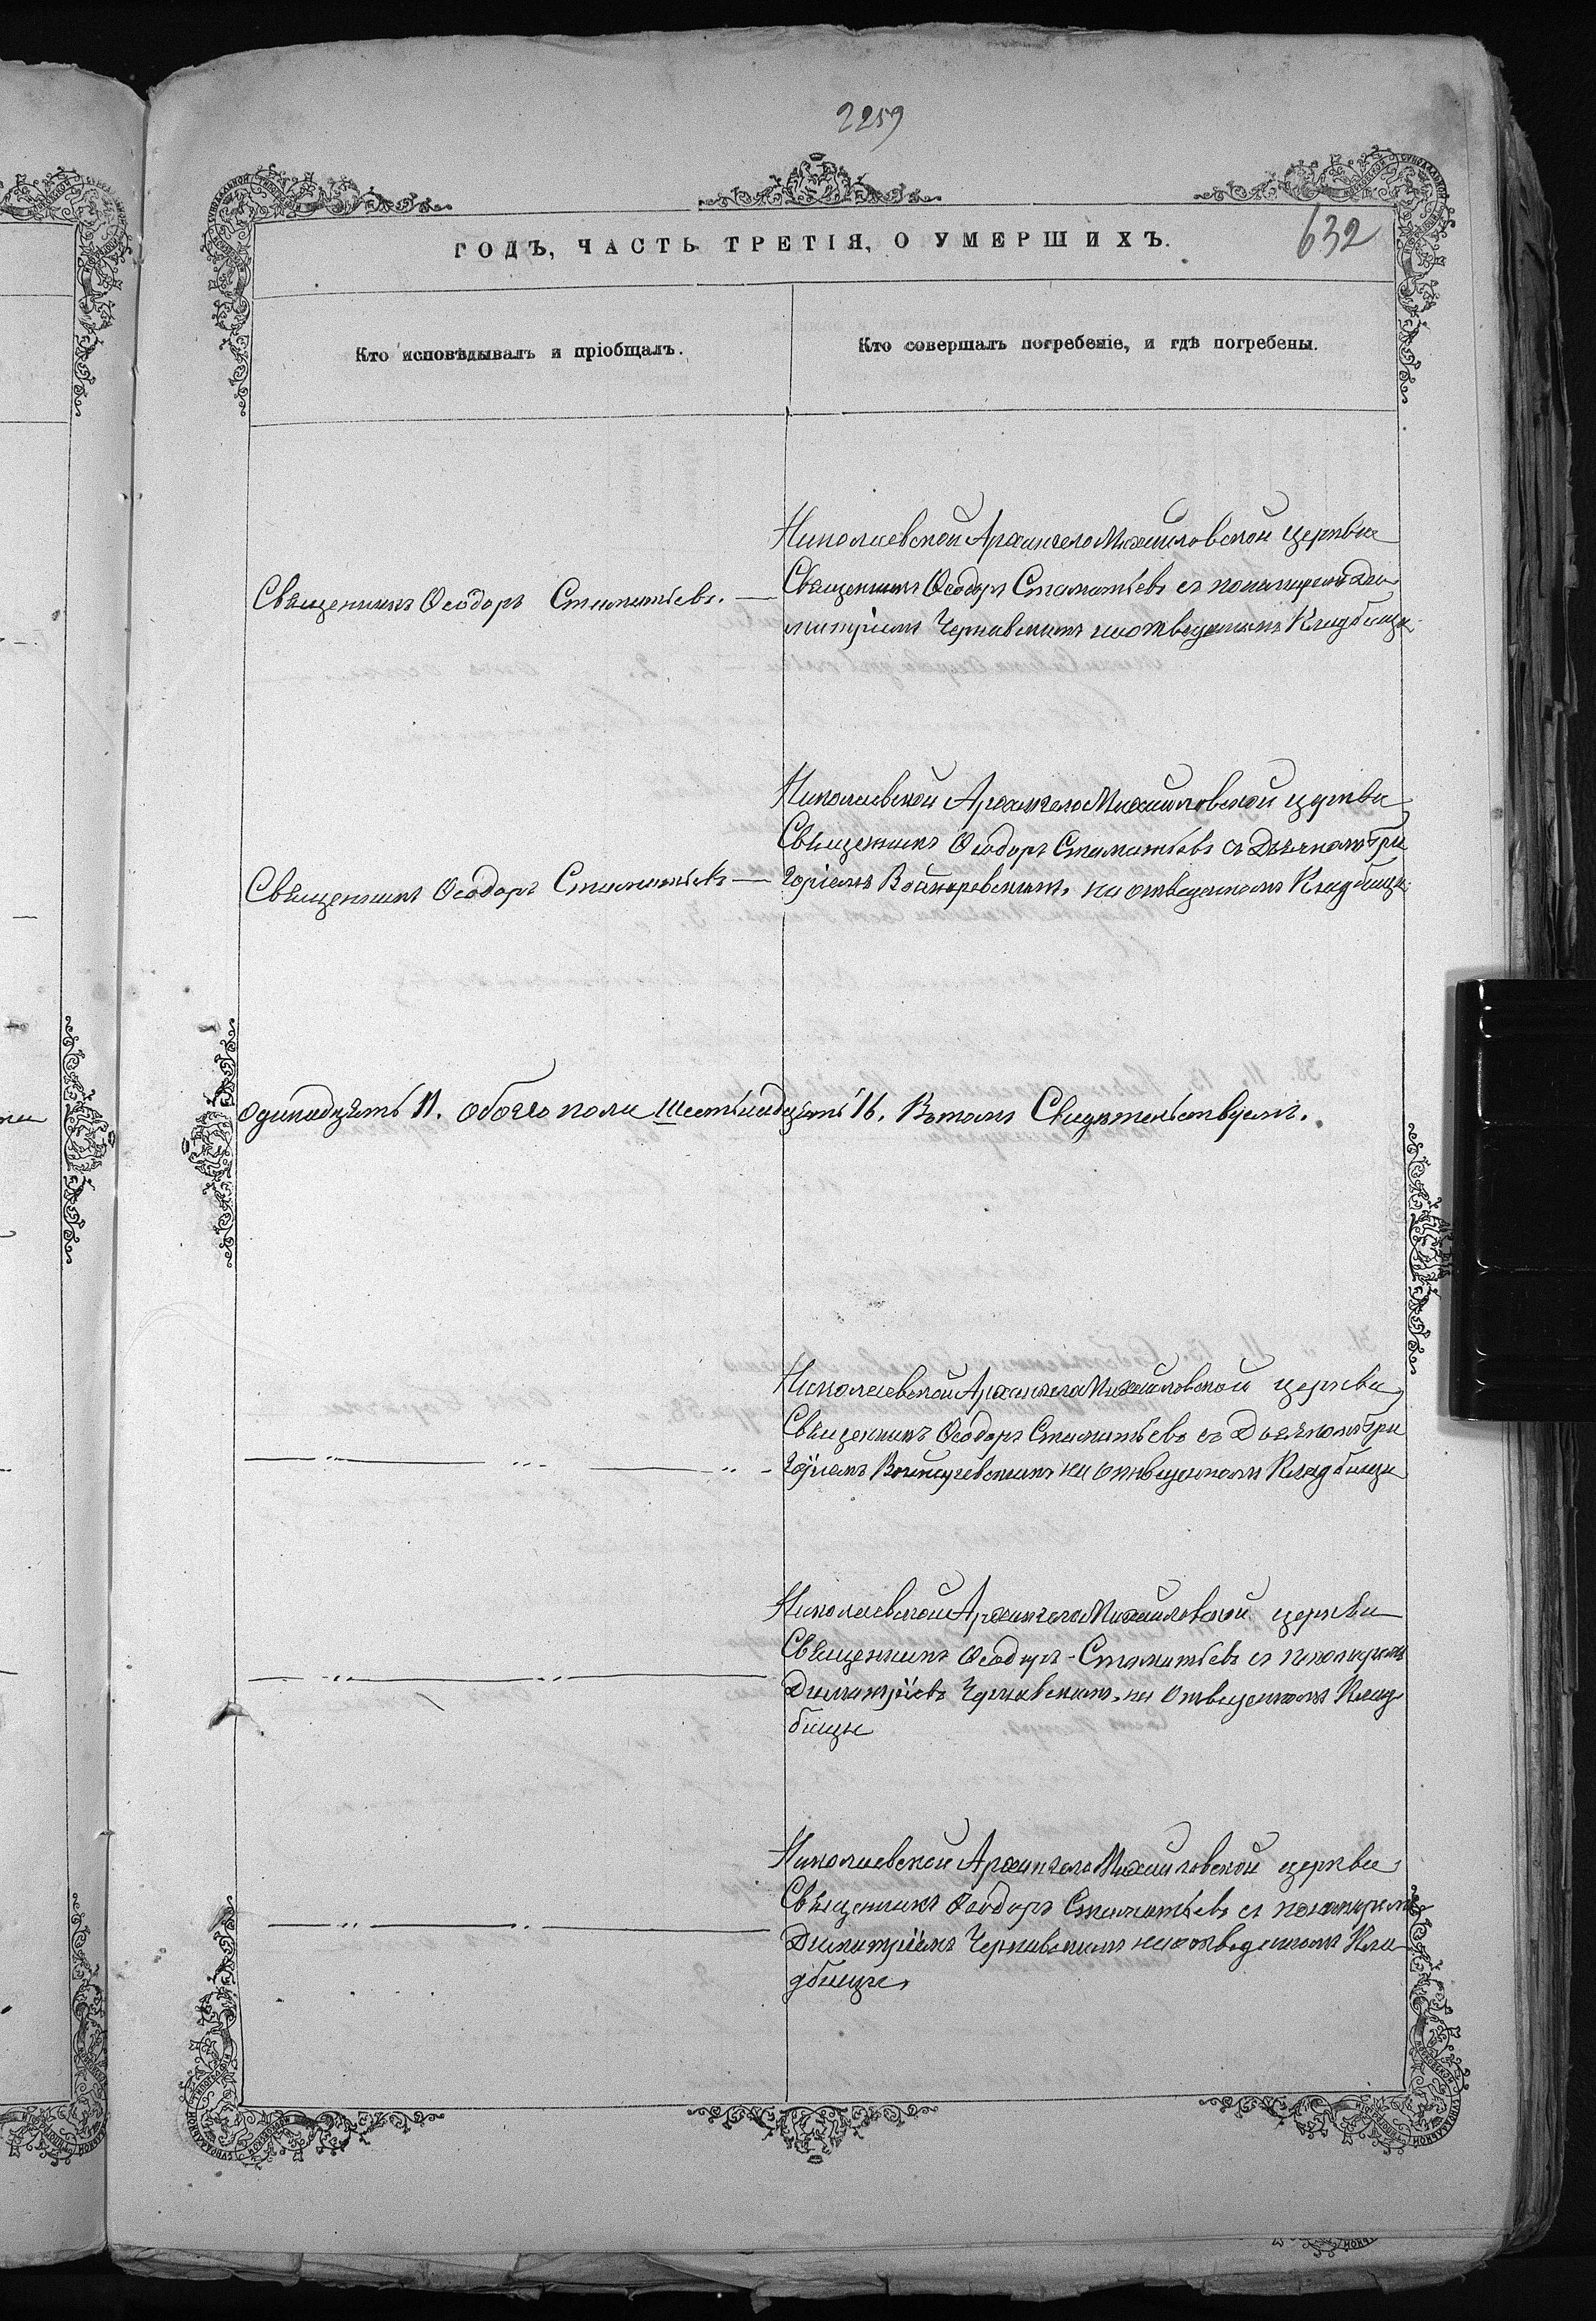 2259
632
ГОДЪ, ЧАСТЬ ТРЕТІЯ, О УМЕРШИХЪ.
Кто исповѣдывалъ и пріобщалъ.
Кто совершалъ погребеніе, и гдѣ погребены.
Священникъ Ѳеодоръ Стаматьевъ.
Николаевской Архангело Михаиловской церкви
Священникъ Ѳеодоръ Стаматьевъ съ пономаремъ Ди-
митріемъ Чернявскимъ на отведенномъ Кладбищѣ
Священникъ Ѳеодоръ Стаматьевъ
Николаевской Архангело Михаиловской церкви
Священникъ Ѳеодоръ Стаматьевъ съ Дьячкомъ Гри
горіемъ на отведенномъ Кладбищѣ
Одинадцать 11. обоего пола шестьнадцать 16. Въ томъ Свидѣтельствуемъ.
Николаевской Архангело Михаиловской церкви
Священникъ Ѳеодоръ Стаматьевъ съ Дьячкомъ Гри
горіемъ на отведенномъ Кладбищѣ
Николаевской Архангело Михаиловской церкви
Священникъ Ѳеодоръ Стаматьевъ съ пономаремъ
Димитріемъ Чернявскимъ на отведенномъ Клад-
бищѣ
Николаевской Архангело Михаиловской церкви
Священникъ Ѳеодоръ Стаматьевъ съ пономаремъ
Димитріемъ Чернявскимъ на отведенномъ Кла-
дбище